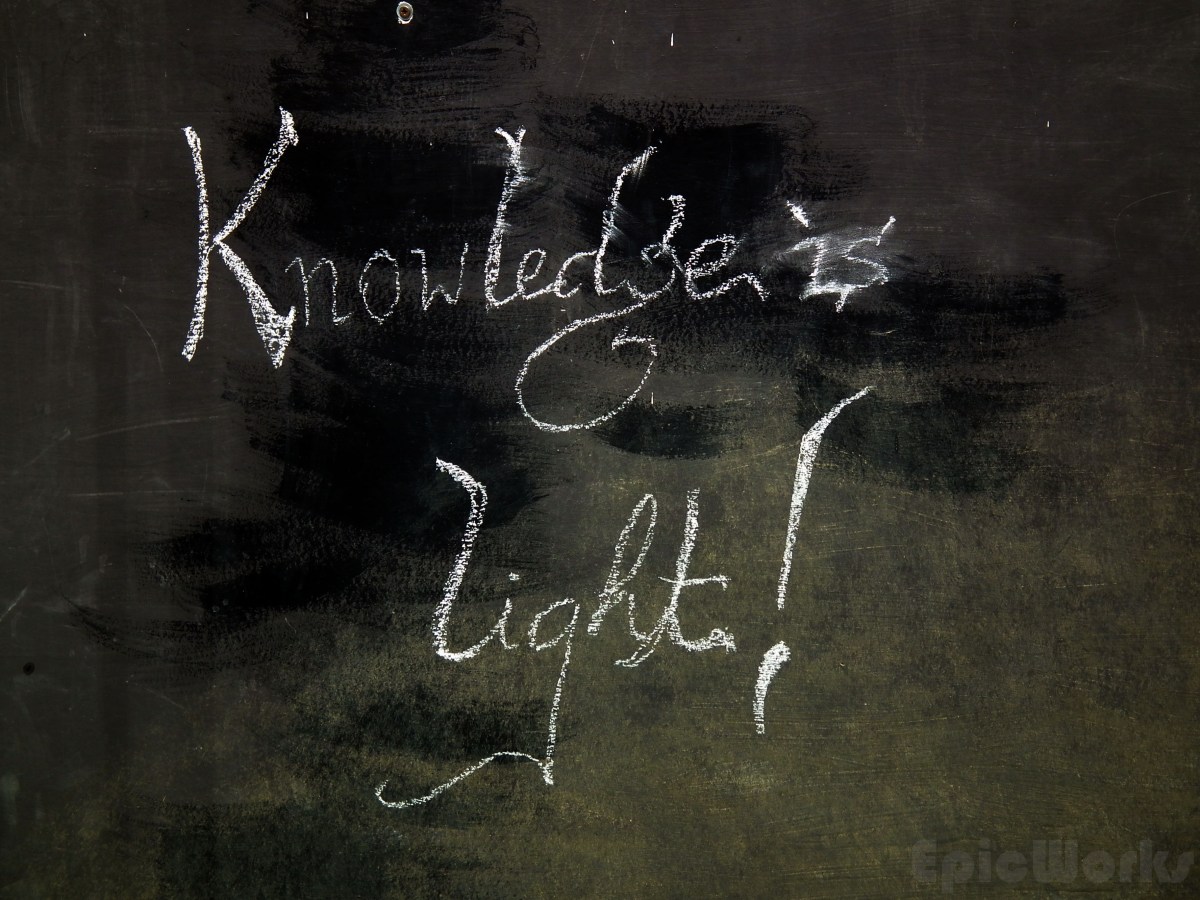 Knowledge is
Light!
EpicWorks